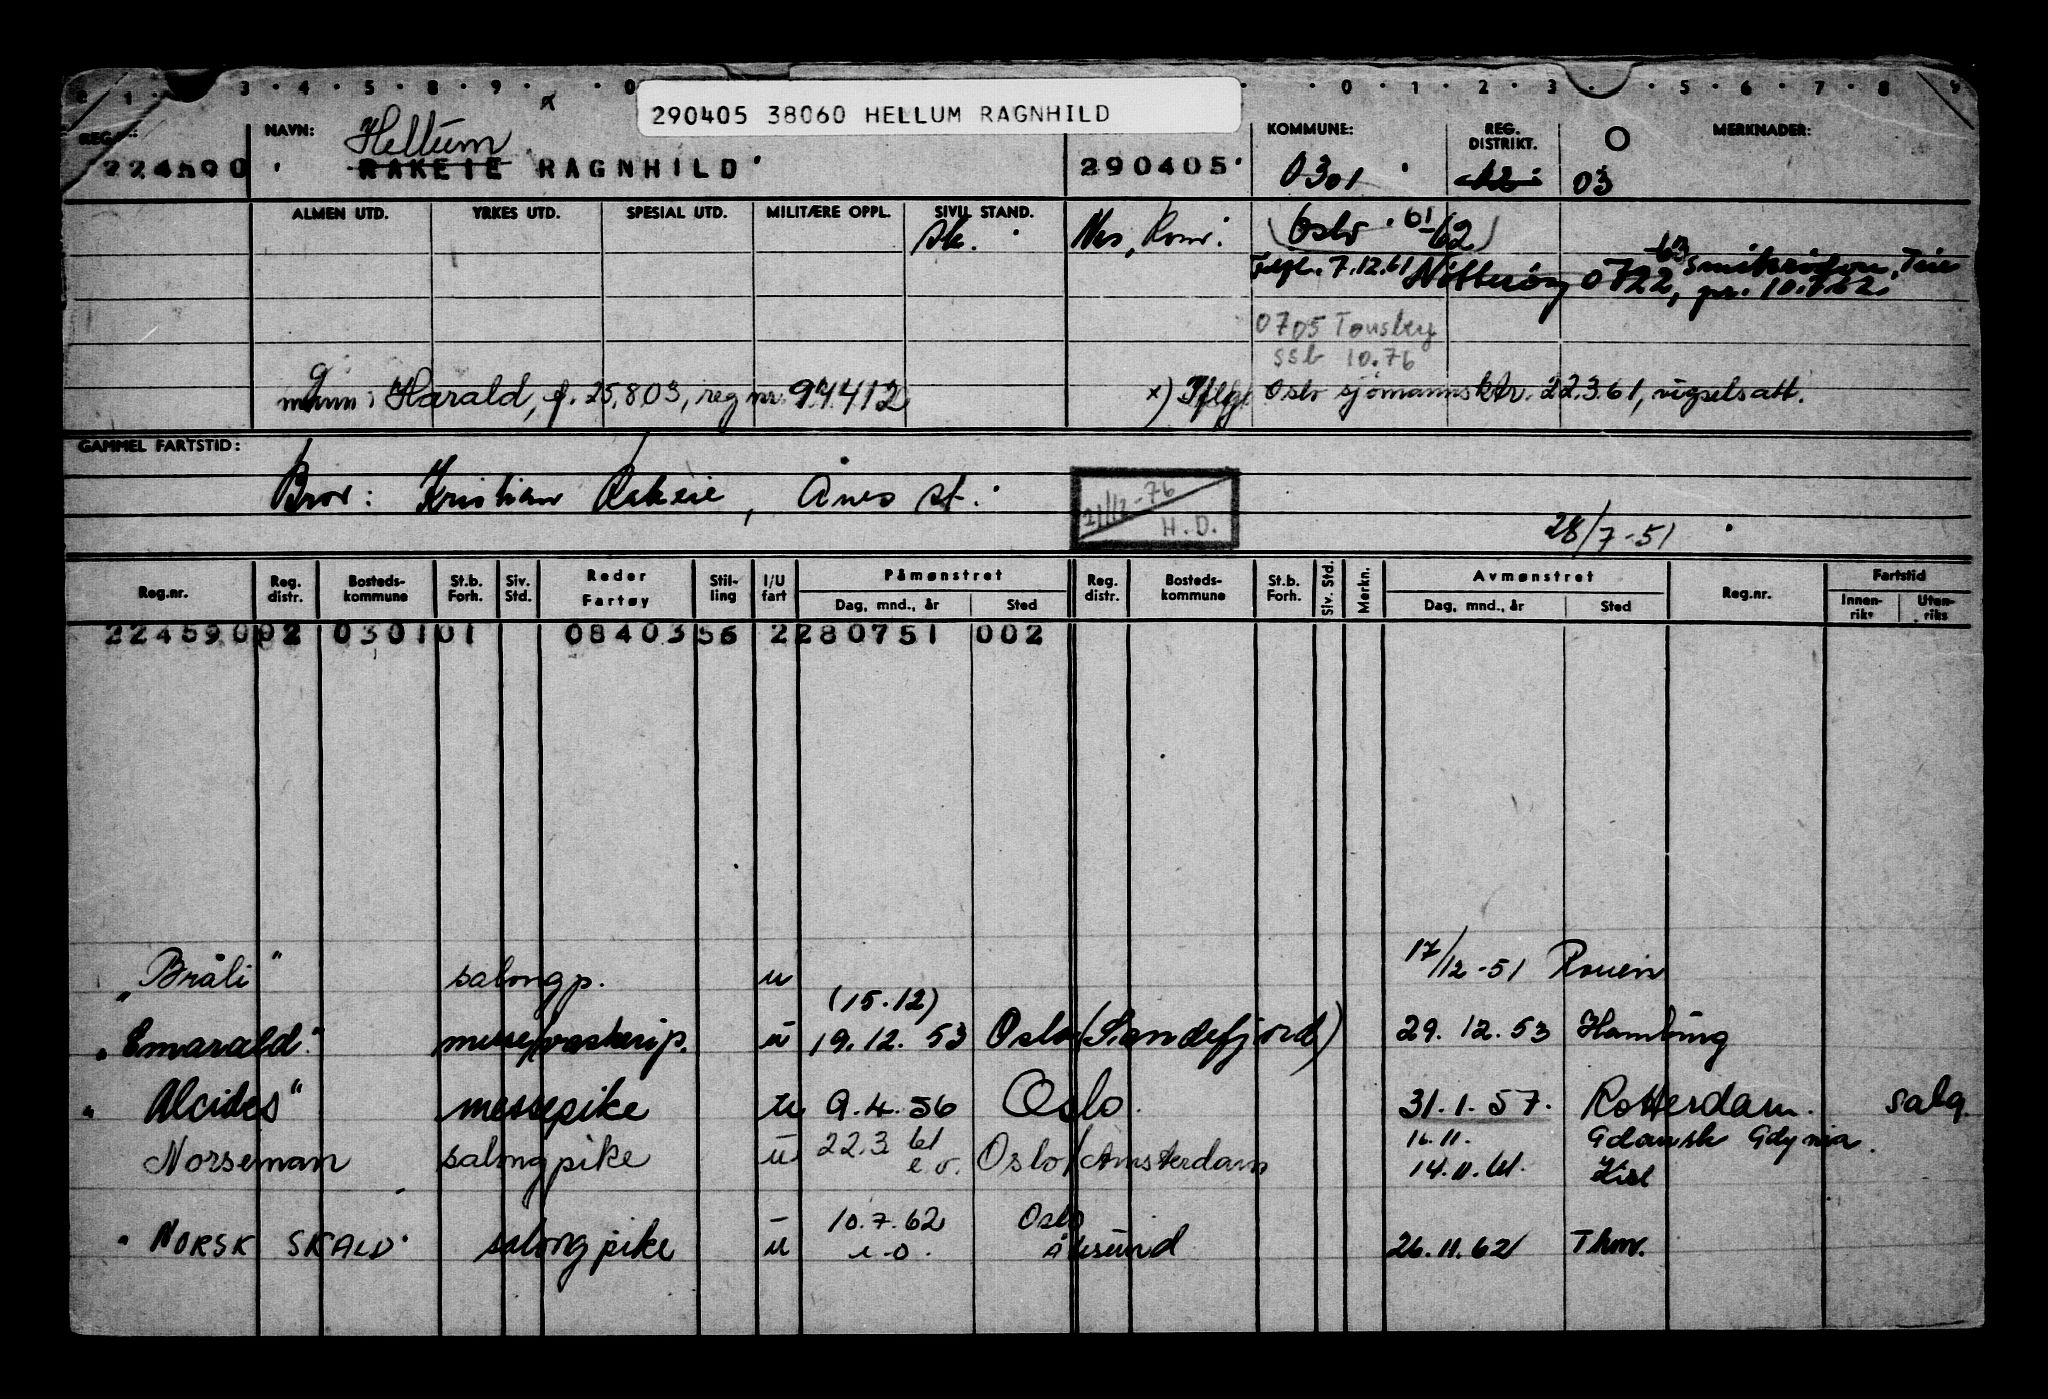 290405 38060 HELLUM RAGNHILD
REG. NAVN: Hellum KOMMUNE: REG. DISTRIKT. MERKNADER:
224590 RAKEIE RAGNHILD 290405 0301 12 03
ALMEN UTD. YRKES UTD. SPESIAL UTD. MILITÆRE OPPL. SIVIL STAND.
sk. Nes, Rom. (Oslo 61-62)
7.12.61 Nøtterøy 0722, 63 Smidsrødvn, Teie pr. 10.7.62
0705 Tønsberg
ssb 10.76
g
mann: Harald, f. 25.8.03, reg nr. 94412 x) Iflg. Oslo sjømannsktr. 22.3.61, vigselsatt.
GAMMEL FARTSTID:
Bror: Kristian Rakeie, Årnes st. 21/12-76
H.D.
28/7-51
Reg.nr. Reg. distr. Bosteds-kommune St.b. Forh. Siv. Std. Reder Fartøy Stil-ling I/U fart Påmønstret Dag, mnd., år Sted Reg. distr. Bosteds-kommune St.b. Forh. Siv. Std. Merkn. Avmønstret Dag, mnd., år Sted Reg.nr. Fartstid Innen-riks Uten-riks
224590 02 0301 01 08403 56 2 280751 002
"Bråli" salongp. u 17/12-51 Rouen
(15.12)
"Emarald" messe/vaskerip. u 19.12.53 Oslo (Sandefjord) 29.12.53 Hamburg
"Alcides" messepike u 9.4.56 Oslo. 31.1.57. Rotterdam. salg.
Norseman salongpike u 22.3 61 e.o. Oslo/Amsterdam 16.11. Gdansk Gdynia.
14.11.61. Kiel
10.7.62 Oslo
"NORSK SKALD" salongpike u e.o. Ålesund 26.11.62 Thm.